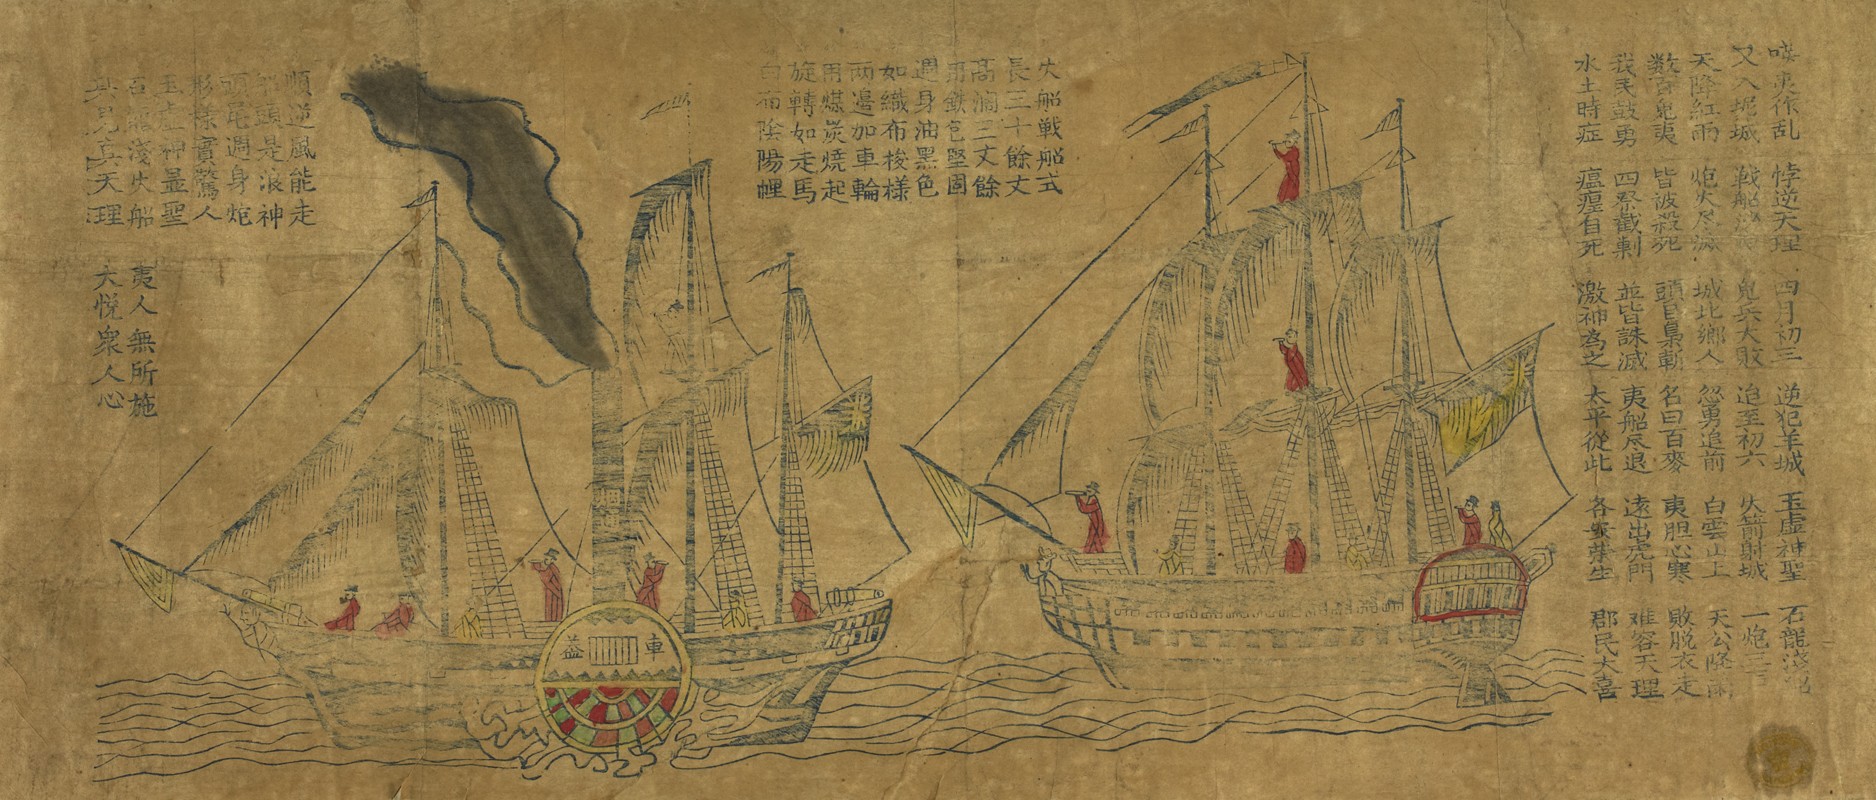 夷作乱 悖逆天理 四月初三 逆犯羊城 玉虚神聖 石龍
又入坭城 戦船 鬼兵大敗 追至初六 火箭射城 一炮三
天降紅雨 炮火尽滅 城北鄉人 忽勇追前 白雲山上 天公降雨
数百鬼夷 皆被殺死 頭目梟斬 名曰百麥 夷胆心寒 敗脱衣走
我民鼓勇 四 截剿 並皆誅滅 夷船尽退 遠出虎門 难容天理
水土時症 瘟瘴自死 激神為之 太平從此 各安業生 郡民大喜
火船戦船式
長三十餘丈
高濶三丈餘
用鉄包堅固
週身油黑色
如織布梭様
两邉加車輪
用煤炭燒起
旋轉如走馬
白布陰陽
順逆風能走
船頭是浪神
頭尾週身炮
形様實驚人
玉虚神显聖
石龍淺火船 夷人無所施
共見真天理 大悦衆人心
烟通
車益